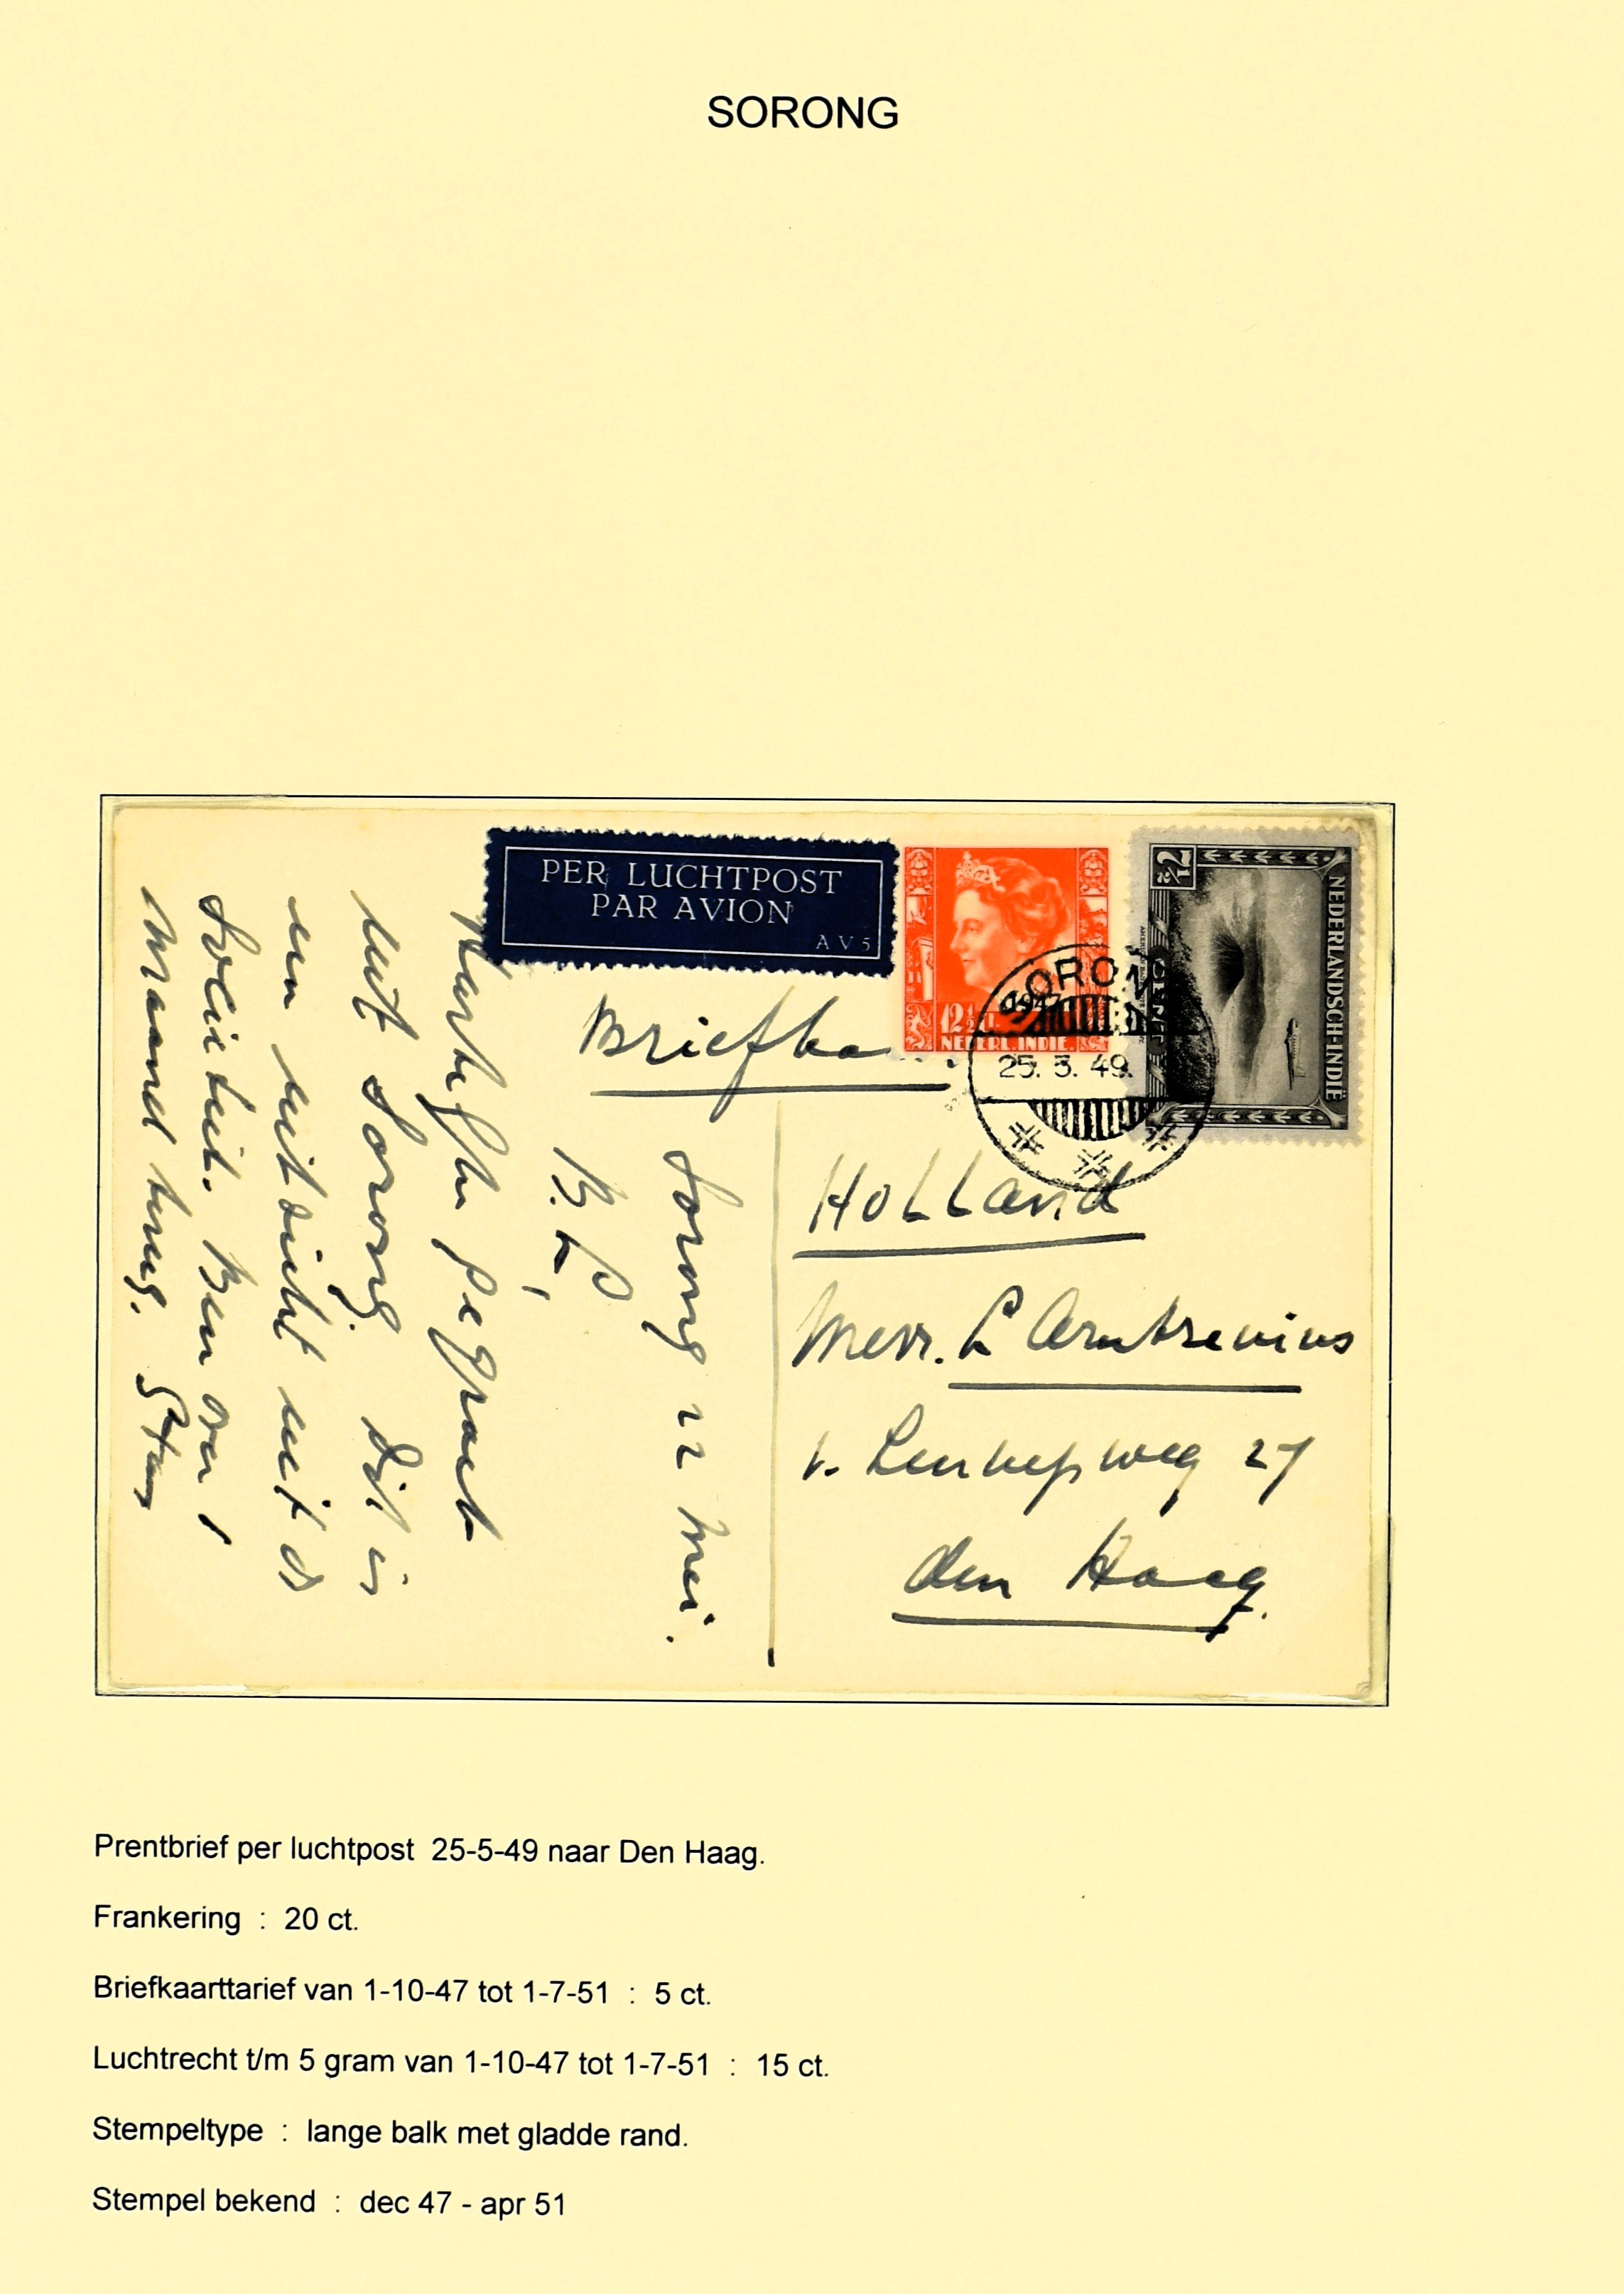 SORONG
PER LUCHTPOST
PAR AVION
AV5
12½ ct.
1947
NEDERL. INDIE.
7½
CENT
NEDERLANDSCH-INDIË
SORONG
25. 5. 49.
Briefka
Holland
Mevr. L
v. Lennepweg 27
den Haag.
Sorong 22 mei.
B. L,
Hartelijk gegroet
uit Sorong. Dit is
een uitzicht uit de
Sociëteit. Ben over 1
maand terug. Stan
Prentbrief per luchtpost 25-5-49 naar Den Haag.
Frankering : 20 ct.
Briefkaarttarief van 1-10-47 tot 1-7-51 : 5 ct.
Luchtrecht t/m 5 gram van 1-10-47 tot 1-7-51 : 15 ct.
Stempeltype : lange balk met gladde rand.
Stempel bekend : dec 47 - apr 51